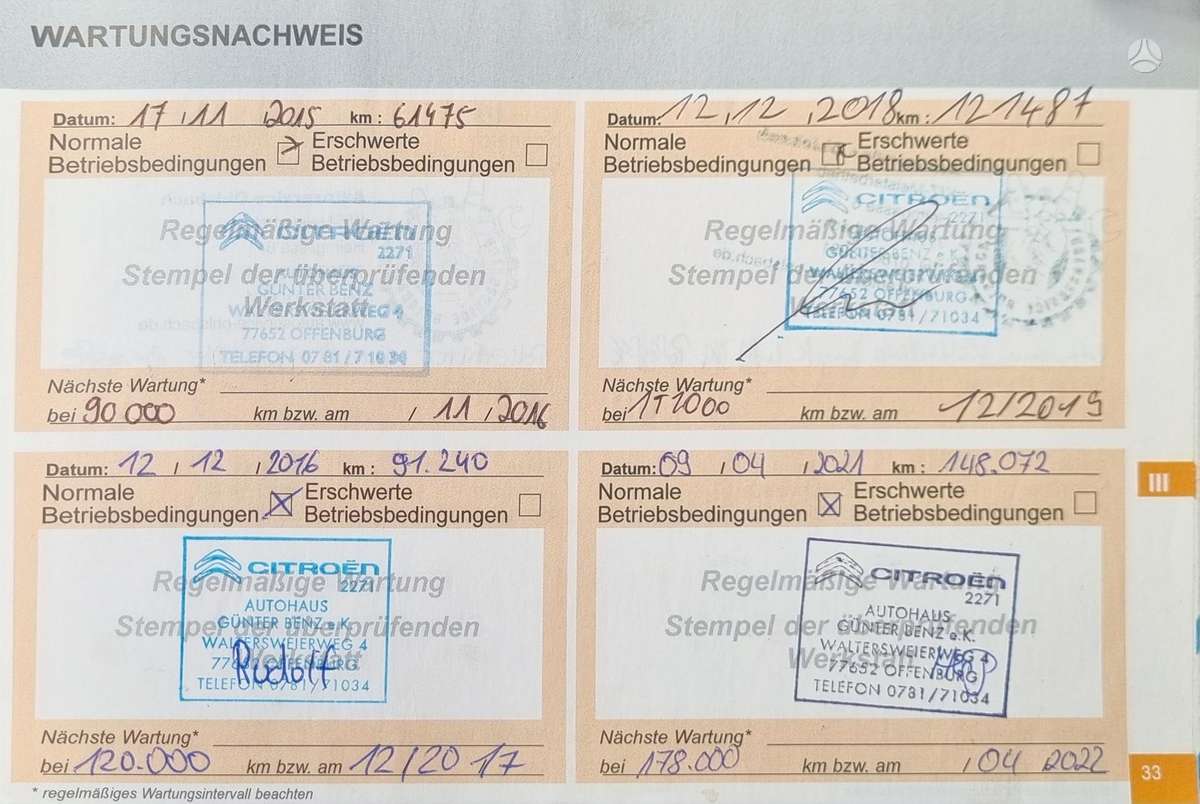 WARTUNGSNACHWEIS
Datum: 17 / 11 / 2015 km : 61475
Normale
Betriebsbedingungen
Erschwerte
Betriebsbedingungen
Regelmäßige Wartung
Stempel der überprüfenden
Werkstatt
CITROËN
2271
AUTOHAUS
GÜNTER BENZ
WALTERSWEIERWEG 4
77652 OFFENBURG
TELEFON 0781/71034
Nächste Wartung*
bei 90 000 km bzw. am / 11 / 2016
Datum: 12 / 12 / 2016 km : 91.240
Normale
Betriebsbedingungen
Erschwerte
Betriebsbedingungen
Regelmäßige Wartung
Stempel der überprüfenden
Werkstatt
CITROËN
2271
AUTOHAUS
GÜNTER BENZ e.K.
WALTERSWEIERWEG 4
77652 OFFENBURG
TELEFON 0781/71034
Rudolf
Nächste Wartung*
bei 120.000 km bzw. am 12/2017
* regelmäßiges Wartungsintervall beachten
Datum: 12, 12, 2018 km : 121487
Normale
Betriebsbedingungen
Erschwerte
Betriebsbedingungen
Regelmäßige Wartung
Stempel der überprüfenden
Werkstatt
CITROËN
2271
AUTOHAUS
GÜNTER BENZ e.K.
WALTERSWEIERWEG 4
77652 OFFENBURG
TELEFON 0781/71034
Nächste Wartung*
bei km bzw. am 12/2019
Datum: 09 / 04 / 2021 km : 148.072
Normale
Betriebsbedingungen
Erschwerte
Betriebsbedingungen
Regelmäßige Wartung
Stempel der überprüfenden
Werkstatt
CITROËN
2271
AUTOHAUS
GÜNTER BENZ e.K.
WALTERSWEIERWEG 4
77652 OFFENBURG
TELEFON 0781/71034
Nächste Wartung*
bei 178.000 km bzw. am / 04 2022
III
33